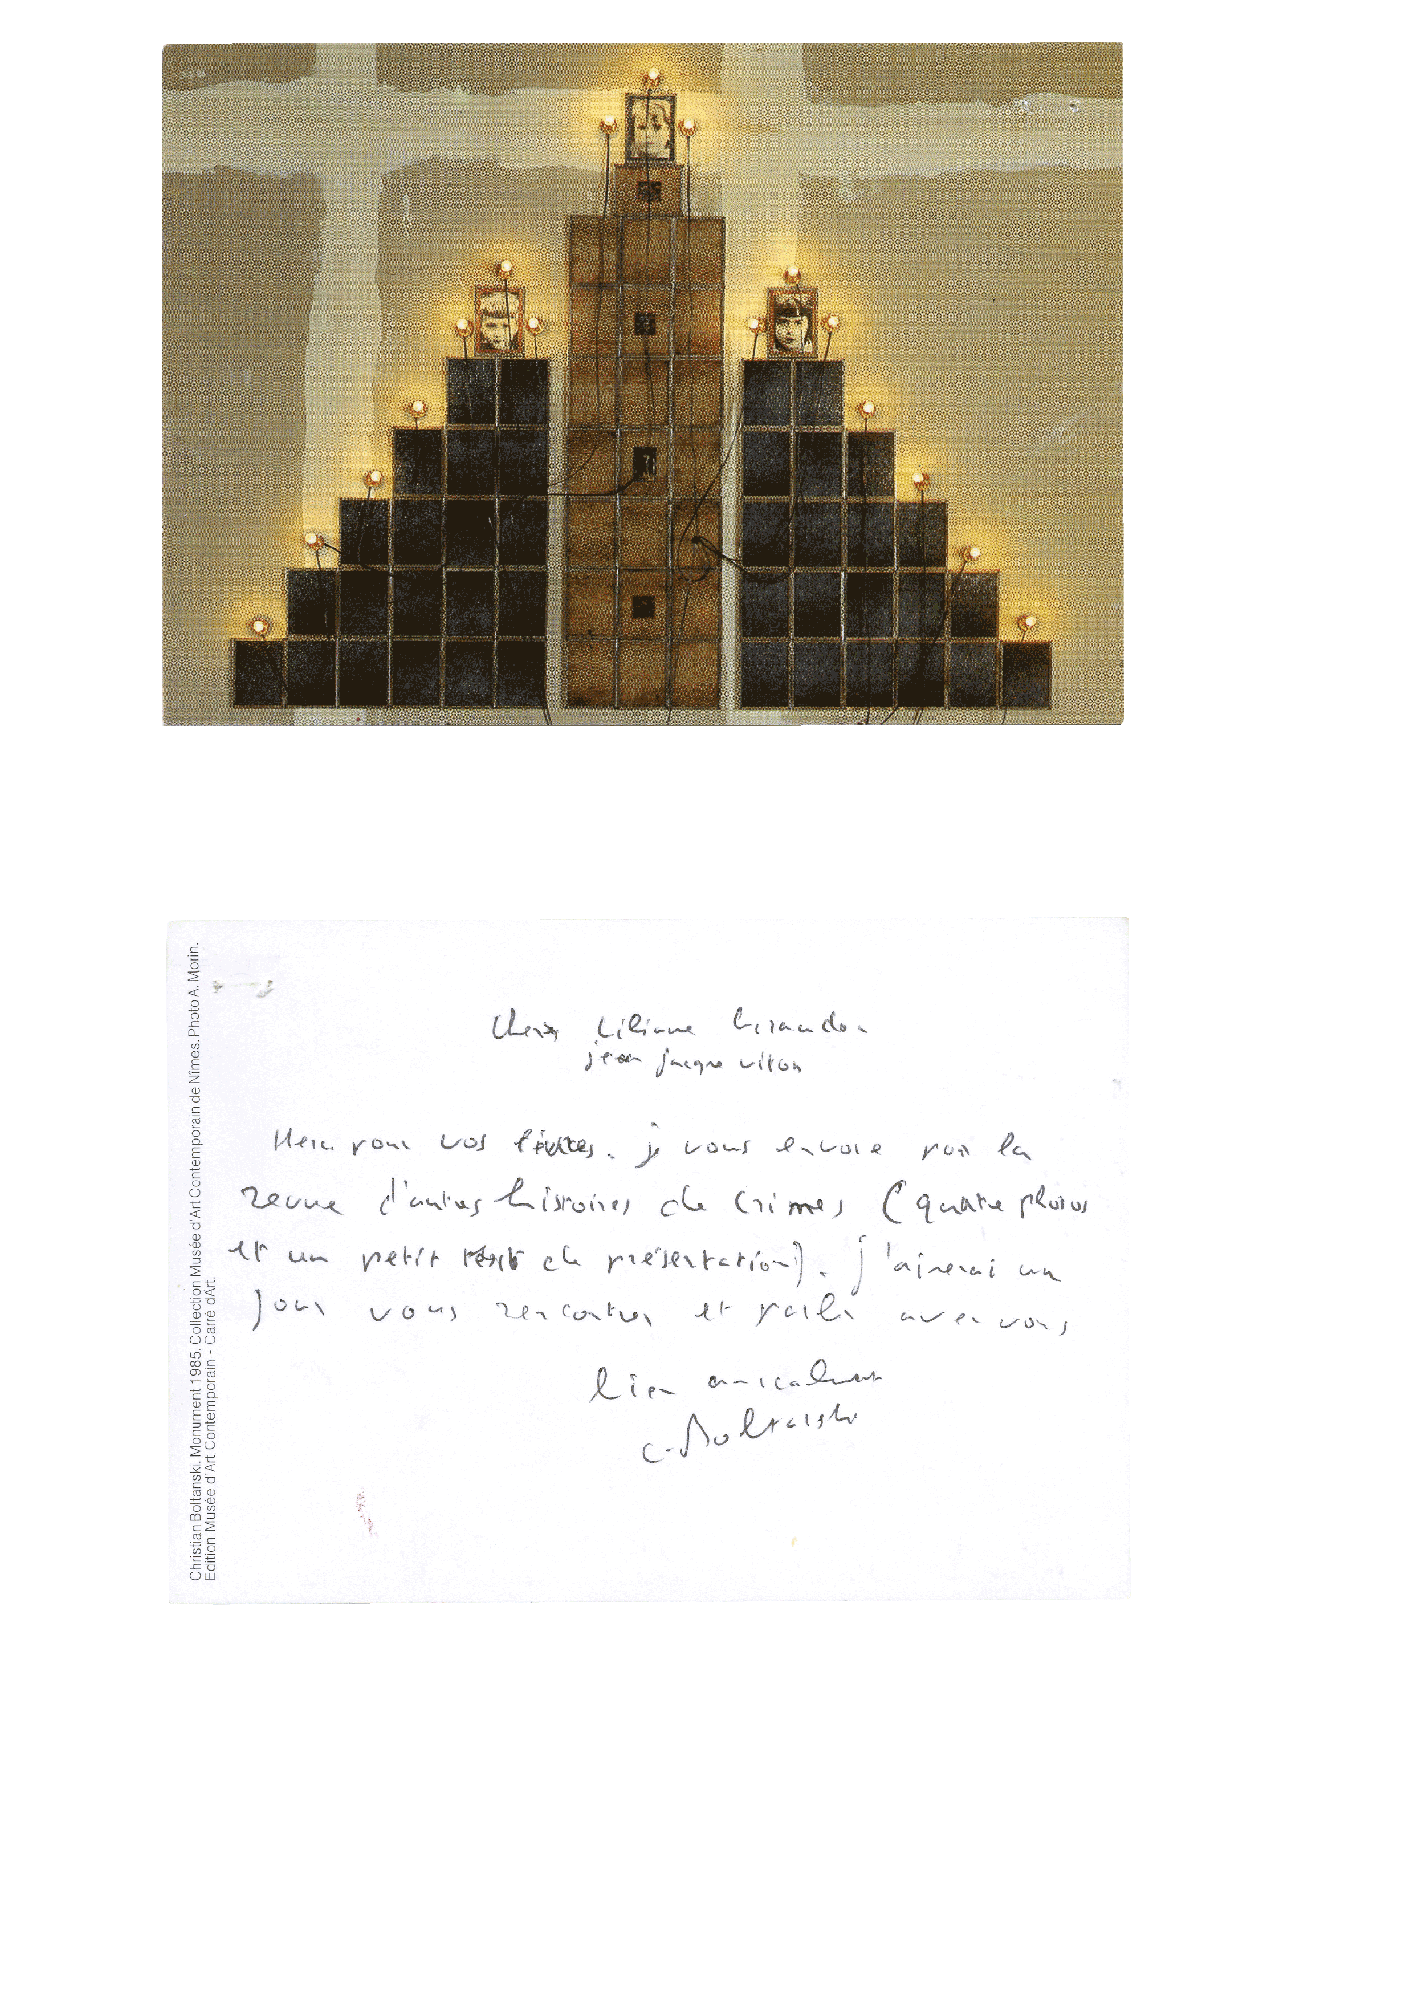 Christian Boltanski. Monument 1985. Collection Musée d'Art Contemporain de Nîmes. Photo A. Morin.
Edition Musée d'Art Contemporain - Carré d'Art.
Chers Liliane Giraudon
jean jacque viton
Merci pour vos livres. je vous envoie pour la
revue d'autres histoires de crimes (quatre photos
et un petit texte de présentation). j'aimerai un
jour vous rencontrer et parler avec vous
bien amicalement
C. Boltanski